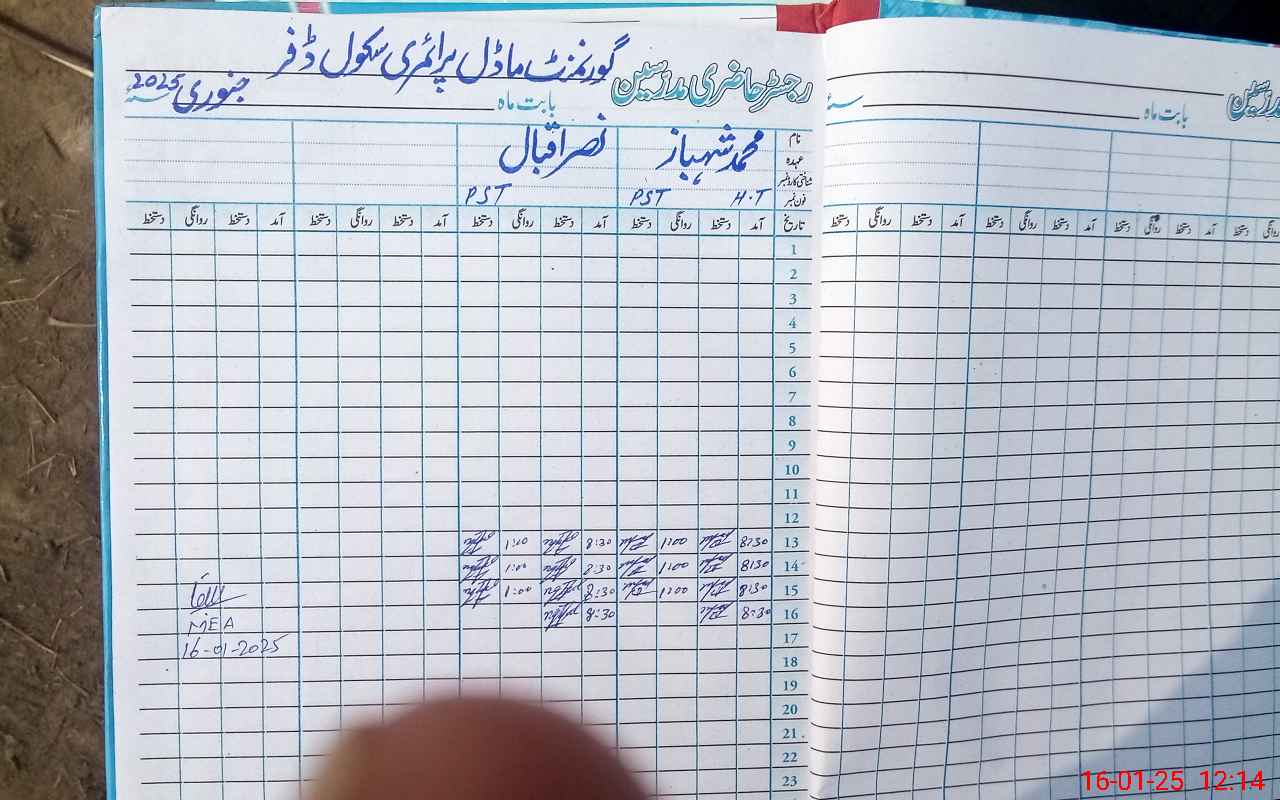 گورنمنٹ ماڈل پرائمری سکول ڈفر
رجسٹر حاضری مدرسین بابت ماہ جنوری 2025 سنہ
نام محمد شہباز نصر اقبال
عہدہ
شناختی کارڈ نمبر
فون نمبر H.T PST PST
تاریخ آمد دستخط روانگی دستخط آمد دستخط روانگی دستخط آمد دستخط روانگی دستخط آمد دستخط روانگی دستخط
1
2
3
4
5
6
7
8
9
10
11
12
13 8:30 1:00 8:30 1:00
14 8:30 1:00 8:30 1:00
15 8:30 1:00 8:30 1:00
16 8:30 8:30
MEA
17
16-01-2025
18
19
20
21
22
23
مدرسین بابت ماہ سنہ
روانگی دستخط آمد دستخط روانگی دستخط آمد دستخط روانگی دستخط آمد دستخط روانگی دستخط
16-01-25 12:14